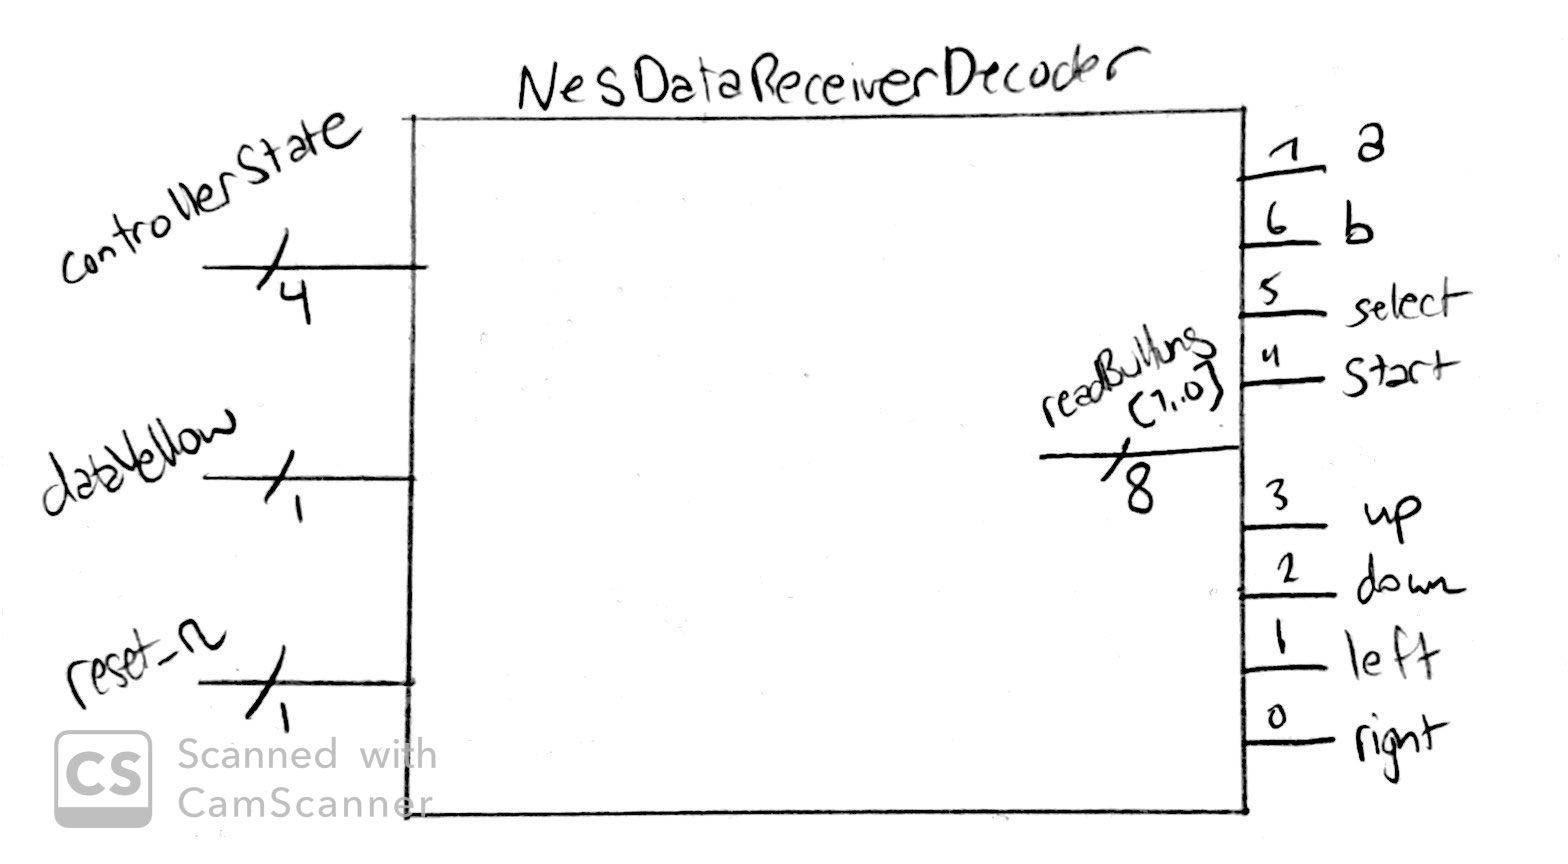 NesDataReceiverDecoder
controllerState
4
dataYellow
1
reset_n
1
readButtons
[7..0]
8
7 a
6 b
5 select
4 start
3 up
2 down
1 left
0 right
CS Scanned with
CamScanner